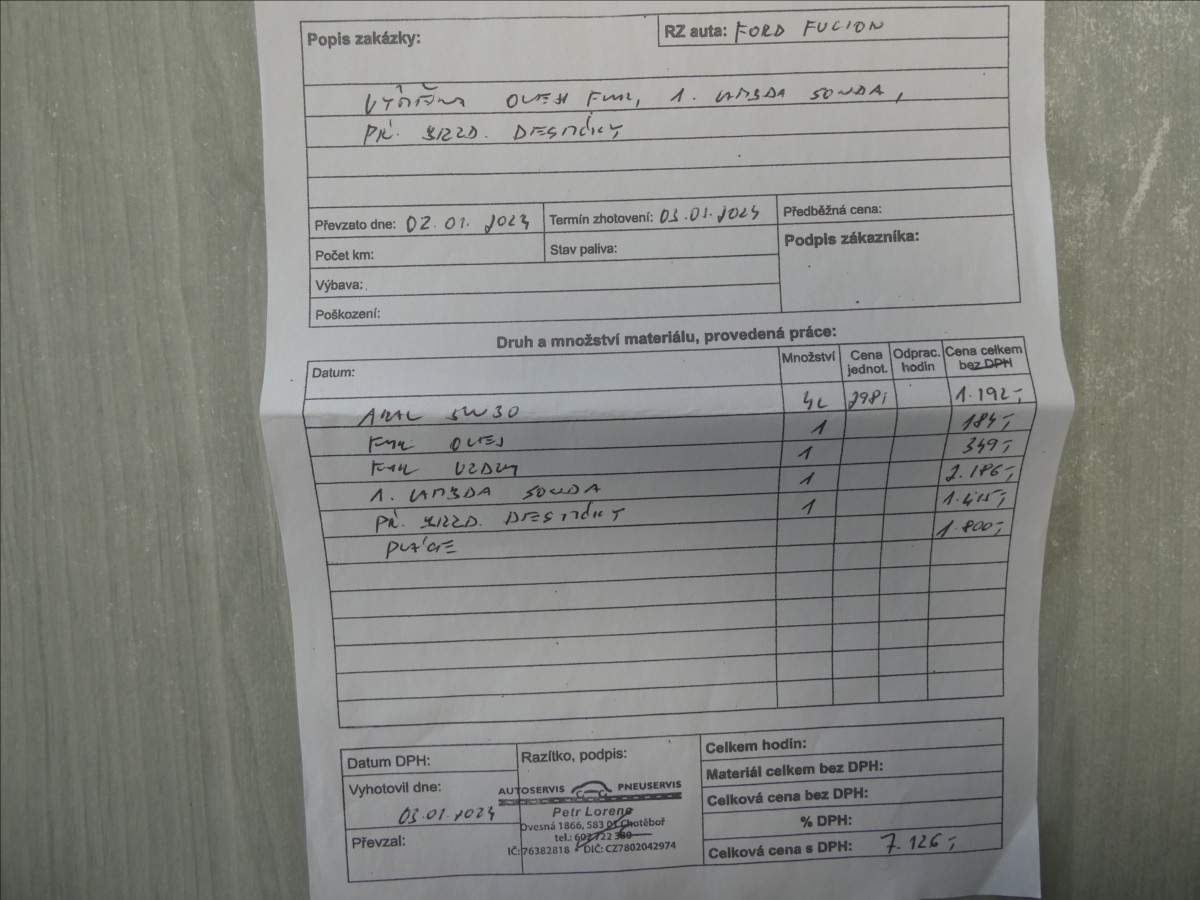 Popis zakázky:
RZ auta: FORD FUCION
VÝMĚNA OLEJ FILTR, 1. LAMBDA SONDA,
PŘ. BRZD. DESTIČKY
Převzato dne: 02.01.2023
Termín zhotovení: 03.01.2023
Předběžná cena:
Počet km:
Stav paliva:
Podpis zákazníka:
Výbava:
Poškození:
Druh a množství materiálu, provedená práce:
Datum:
Množství
Cena jednot.
Odprac. hodin
Cena celkem bez DPH
ARAL 5W30 4L 298,- 1.192,-
FILTR OLEJ 1 184,-
FILTR VZDUCH 1 349,-
1. LAMBDA SONDA 1 2.186,-
PŘ. BRZD. DESTIČKY 1 1.415,-
PRÁCE 1.800,-
Datum DPH:
Razítko, podpis:
Celkem hodin:
Materiál celkem bez DPH:
Vyhotovil dne:
03.01.2023
AUTOSERVIS PNEUSERVIS
Petr Lorenc
Ovesná 1866, 583 01 Chotěboř
tel.: 602 722
IČ: 76382818 DIČ: CZ7802042974
Celková cena bez DPH:
% DPH:
Převzal:
Celková cena s DPH: 7.126,-